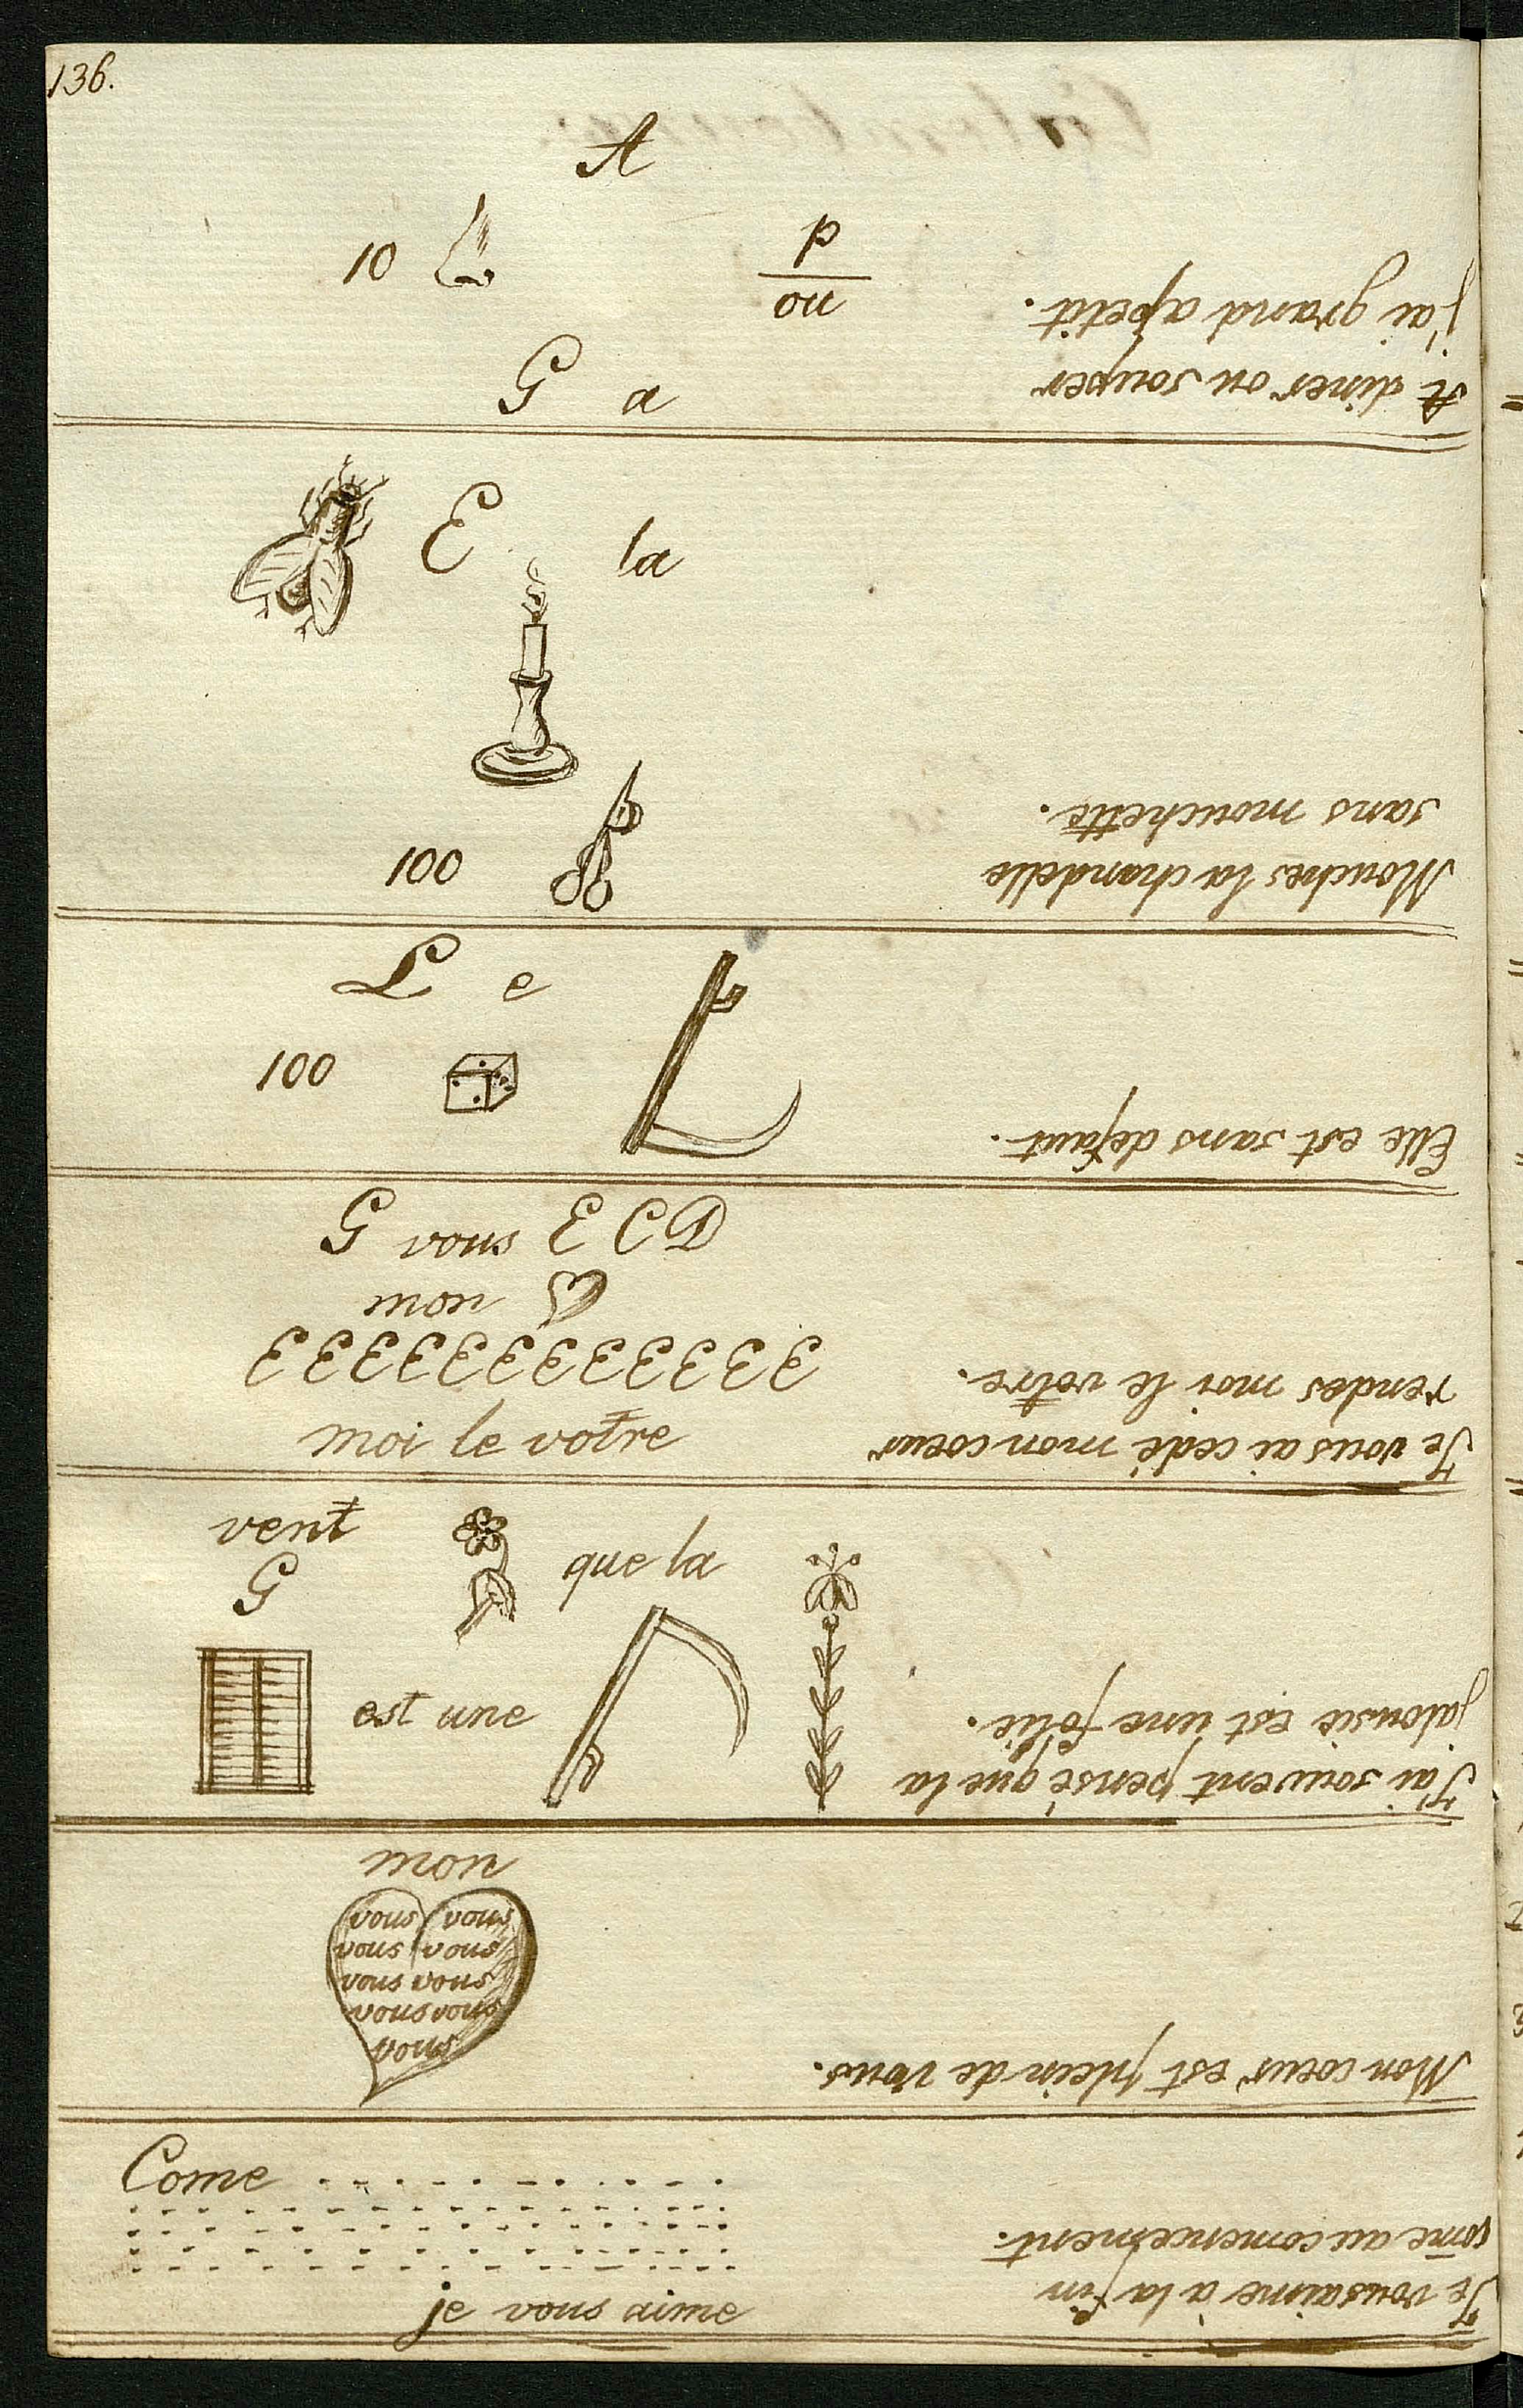 136.
A
10
p
ou
G a
A diner ou souper
j'ai grand apetit.
E la
100
Mouches la chandelle
sans mouchette.
L e
100
Elle est sans defaut.
G vous E C D
mon
3 3 3 3 3 3 3 3 3 3 3 3
moi le votre
Je vous ai cedé mon coeur
rendes moi le votre.
vent
G
que la
est une
J'ai souvent pensé que la
jalousie est une folie.
mon
vous vous
vous vous
vous vous
vous vous
vous
Mon coeur est plein de vous.
Come
je vous aime
Je vous aime à la fin
come au comencement.